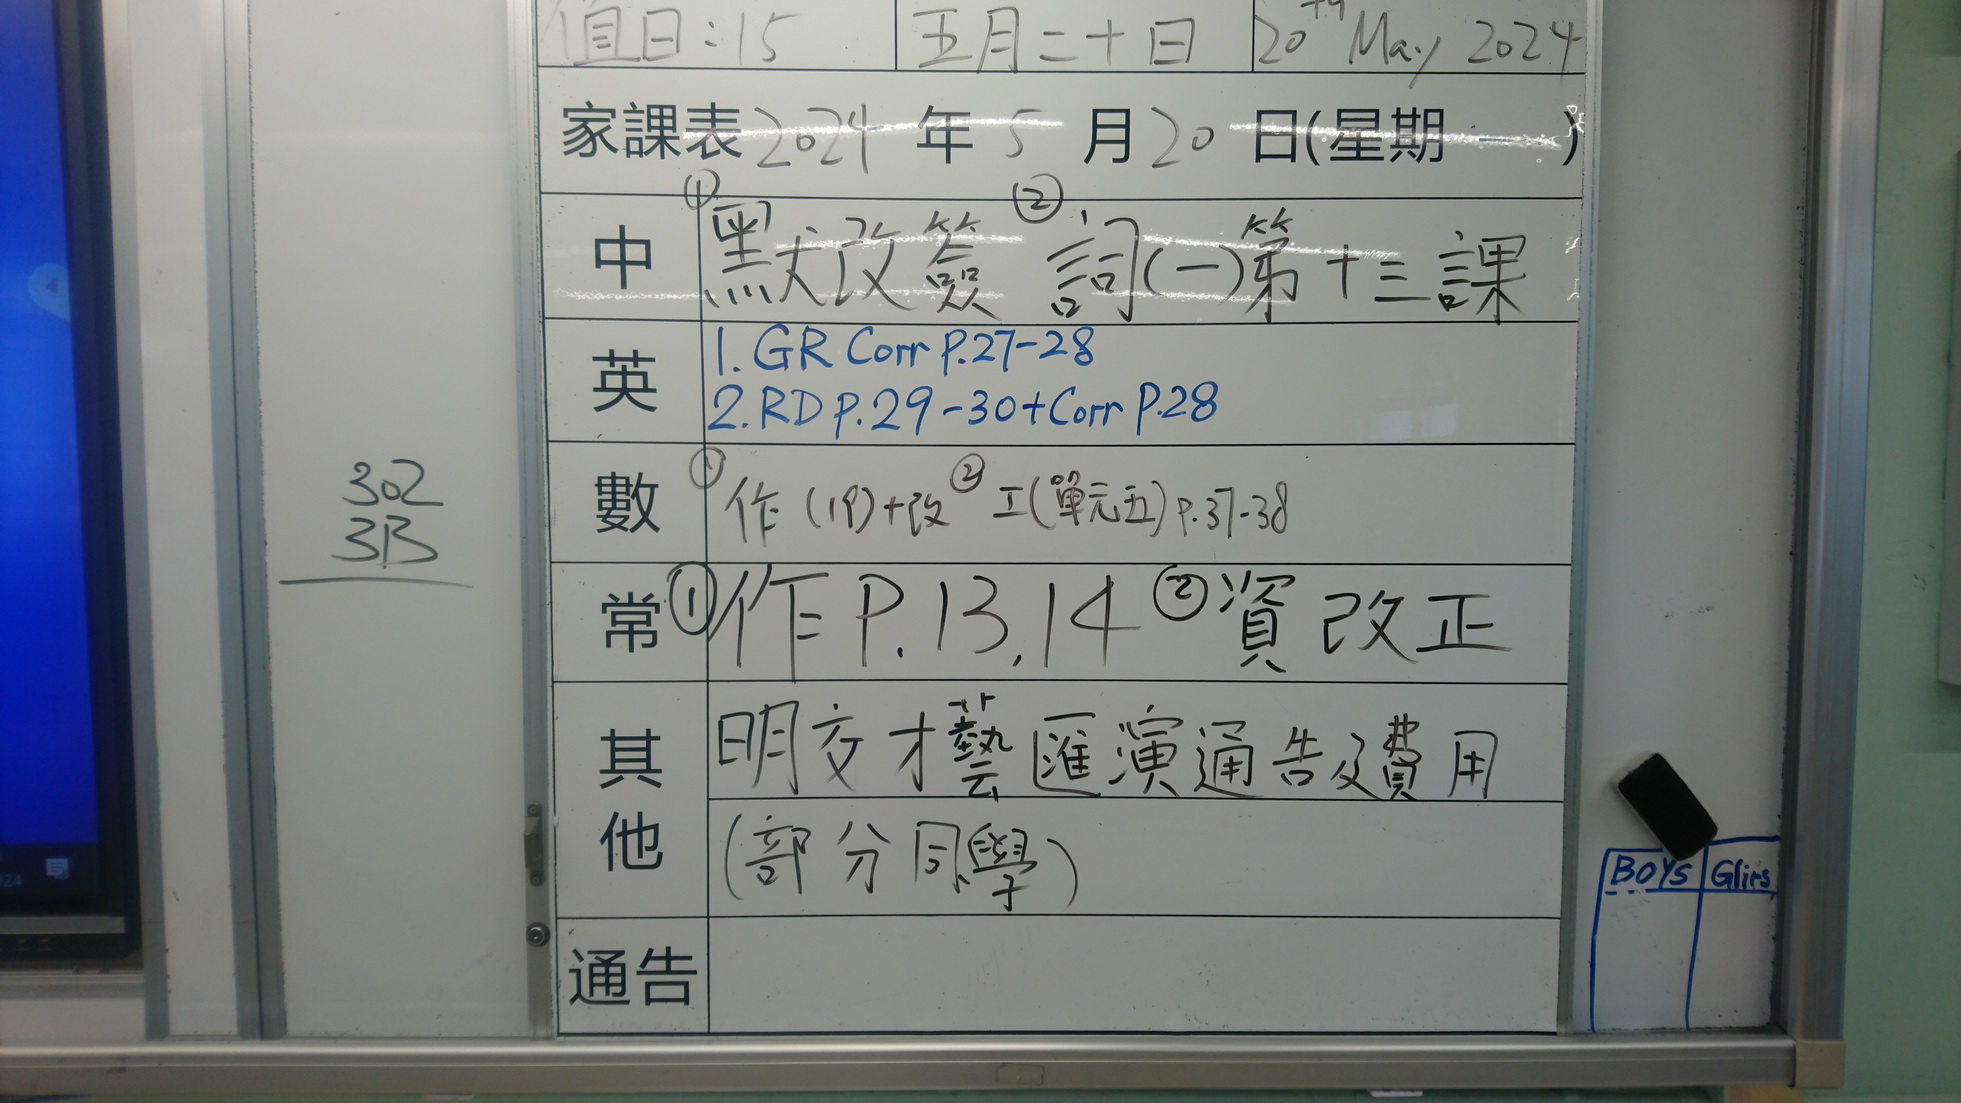 值日:15 五月二十日 20th May 2024
家課表 2024 年 5 月 20 日(星期一)
中 ①默改簽 ②詞(一)第十三課
英 1. GR Corr P.27-28
2. RD P.29-30+Corr P.28
數 ①作(19)+改 ②工(單元五)P.37-38
常 ①作P.13,14 ②資改正
其他 明交才藝匯演通告及費用
(部分同學)
通告
302
3B
BOYS Glirs
24